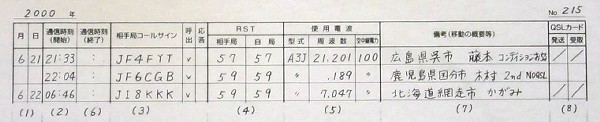 2000年 No. 215
月 日 通信時刻(開始) 通信時刻(終了) 相手局コールサイン 呼出 応答 RST 相手局 自局 使用電波 型式 周波数 空中線電力 備考(移動の概要等) QSLカード 発送 受取
6 21 21:33 : JF4FYT v 57 57 A3J 21.201 100 広島県呉市 藤本 コンディションお
22:04 : JF6CGB v 59 59 〃 .189 〃 鹿児島県国分市 木村 2nd NOQSL
6 22 06:46 : JI8KKK v 59 59 〃 7.047 〃 北海道網走市 かがみ
(1) (2) (6) (3) (4) (5) (7) (8)